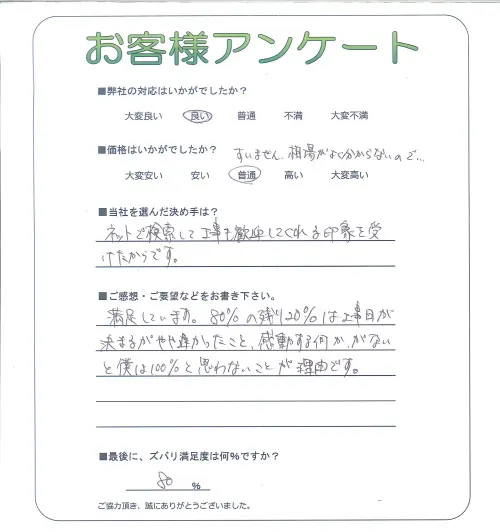 お客様アンケート
■弊社の対応はいかがでしたか？
大変良い 良い 普通 不満 大変不満
■価格はいかがでしたか？ すいません、相場がよく分からないので…
大変安い 安い 普通 高い 大変高い
■当社を選んだ決め手は？
ネットで検索して工事も歓迎してくれる印象を受
けたからです。
■ご感想・ご要望などをお書き下さい。
満足しています。80%の残り20%は工事日が
決まるがやや遅かったこと、感動する何か、がない
と僕は100%と思わないことが理由です。
■最後に、ズバリ満足度は何%ですか？
80 %
ご協力頂き、誠にありがとうございました。